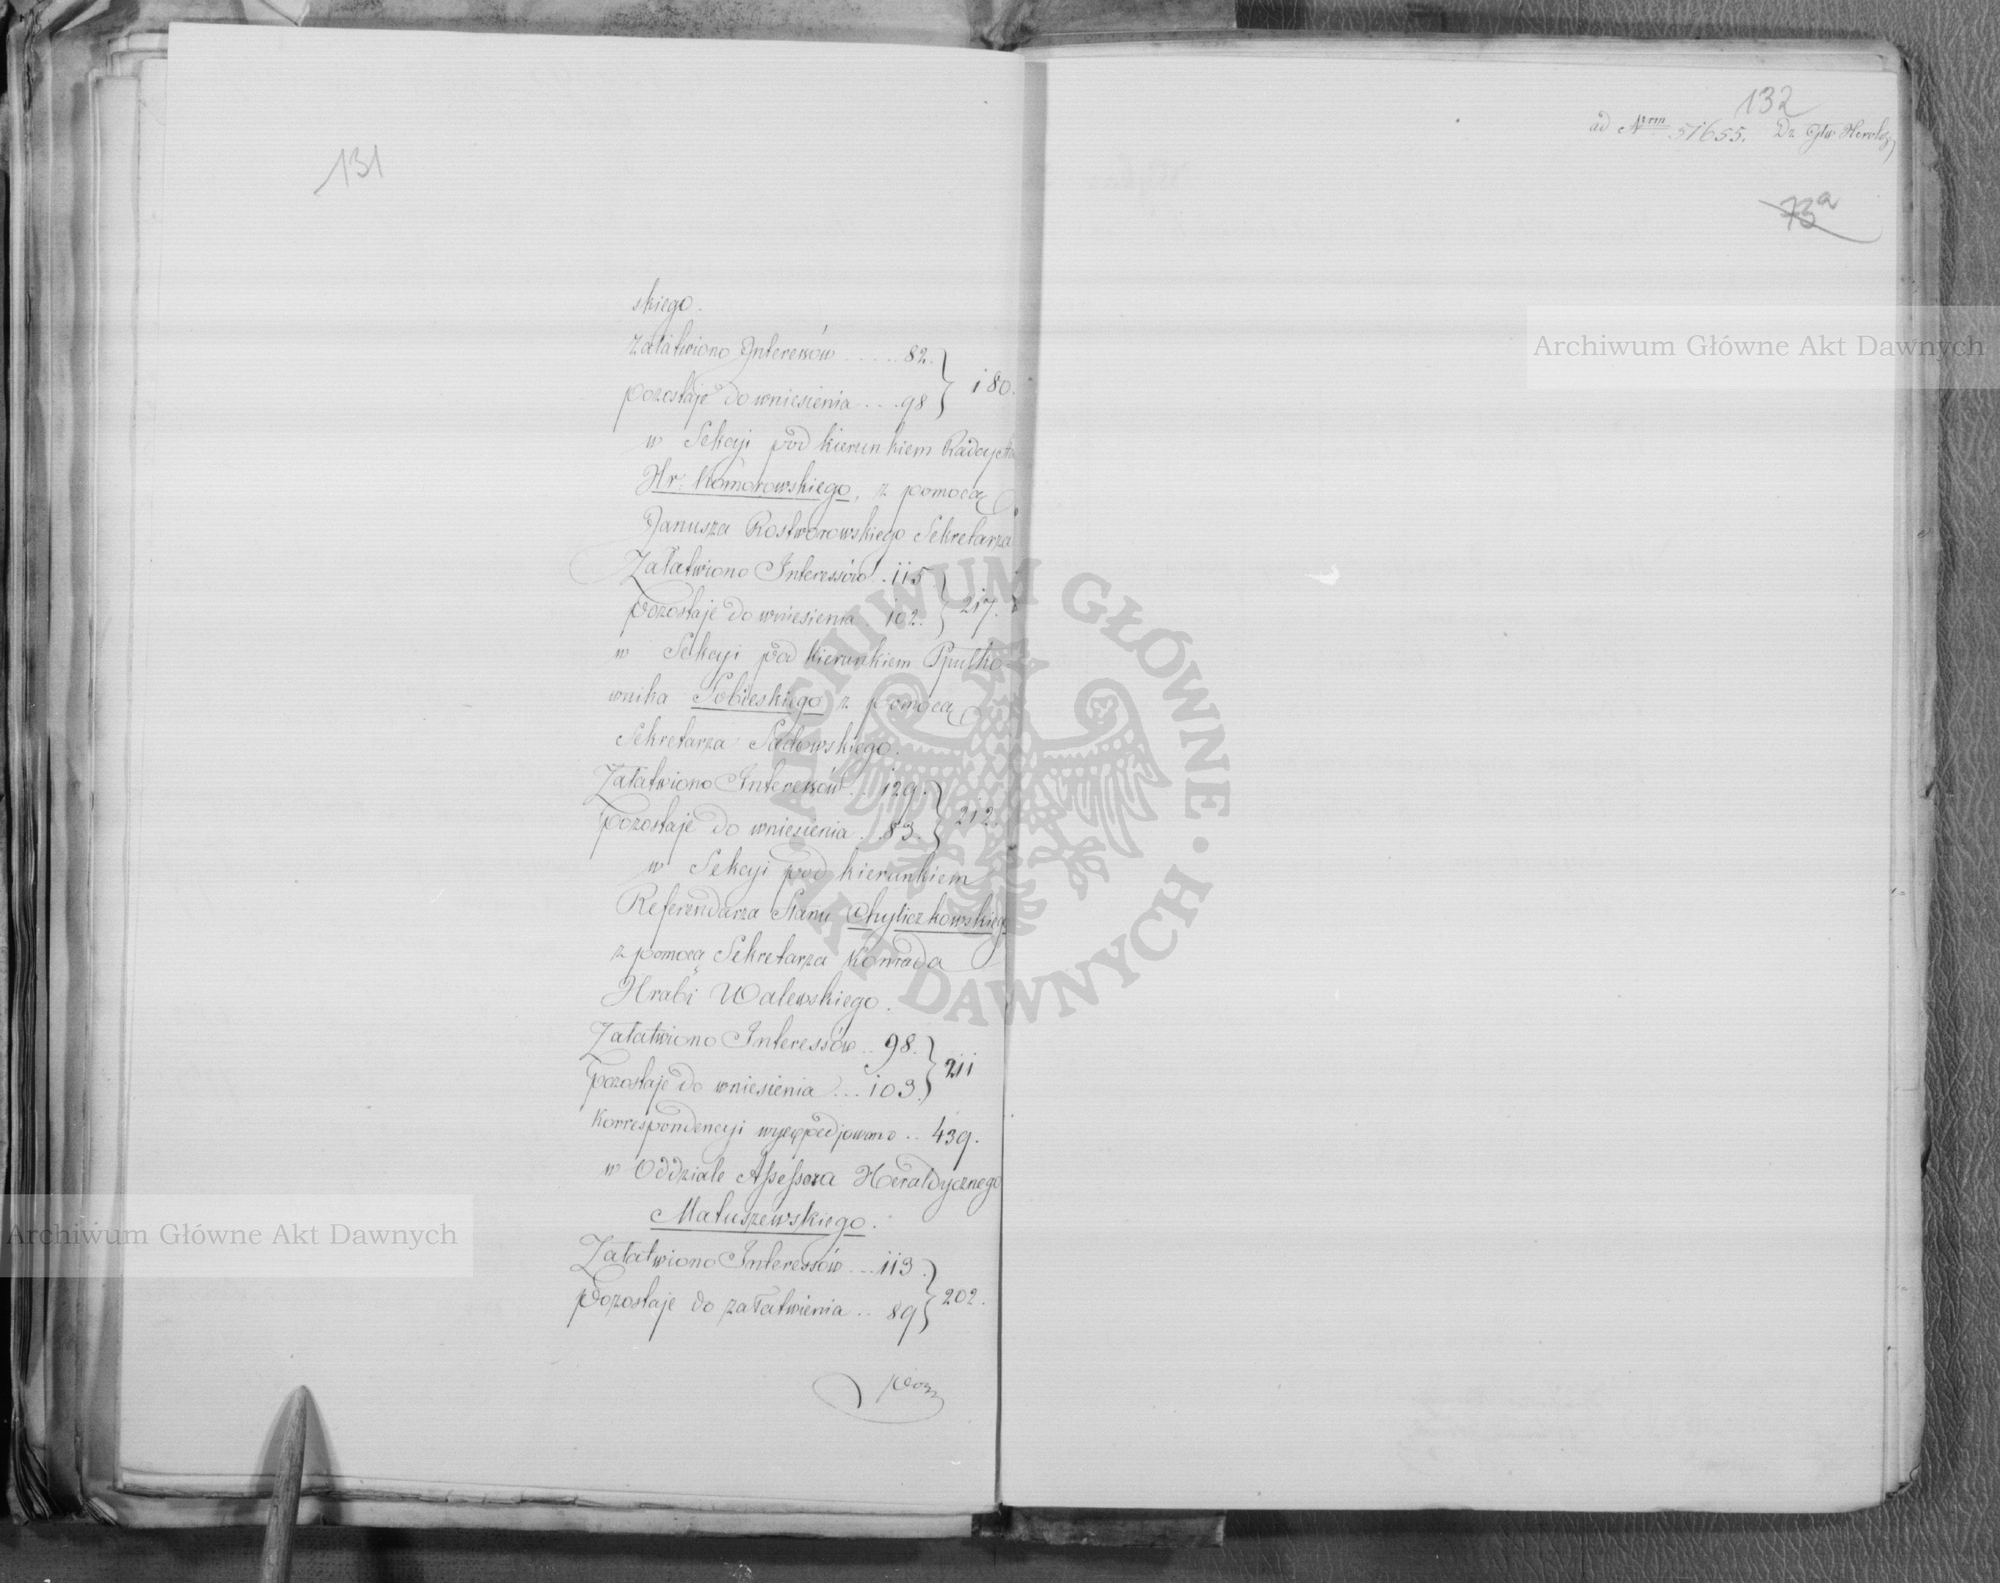 131
skiego.
Załatwiono Interesów ..... 82.
pozostaje do wniesienia ... 98 } 180.
w Sekcyi pod kierunkiem Radcy
Hr: Komorowskiego, z pomocą
Janusza Rostworowskiego Sekretarza
Załatwiono Interessów . 115
pozostaje do wniesienia . 102. } 217.
w Sekcyi pod kierunkiem Ppułko-
wnika Sobieskiego z pomocą
Sekretarza Sadowskiego.
Załatwiono Interessów .. 129.
Pozostaje do wniesienia .. 83. } 212.
w Sekcyi pod kierunkiem
Referendarza Stanu Chyliczkowskiego
z pomocą Sekretarza Konrada
Hrabi Walewskiego.
Załatwiono Interessów .. 98.
pozostaje do wniesienia ... 103. } 211
Korrespondencyi wyexpedjowano .. 439.
w Oddziale Assessora Heraldycznego
Matuszewskiego.
Załatwiono Interessów ... 113.
Pozostaje do załatwienia .. 89 } 202.
poz
132
ad Nrm 51655. Dz Głw Herold
73a
Archiwum Główne Akt Dawnych
Archiwum Główne Akt Dawnych
ARCHIWUM GŁÓWNE · AKT DAWNYCH ·